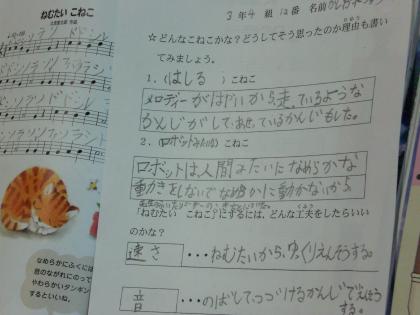 ねむたい こねこ
3年4組12番 名前
☆どんなこねこかな？どうしてそう思ったのか理由も書い
てみましょう。
1．（はしる）こねこ
メロディーがはやいから走っているような
かんじがして、あせっているかんじもした。
2．（ロボットみたいな）こねこ
ロボットは、人間みたいになめらかな
動きをしないでなめらかに動かないから
「ねむたい こねこ」にするには、どんな工夫をしたらいい
のかな？
速さ ・・・ねむたいから、ゆっくりえんそうする。
音 ・・・のばしてつづけるかんじでえんそう
する。
なめらかにふくには
息のながれにのって
やわらかいタンギン
するといいね。